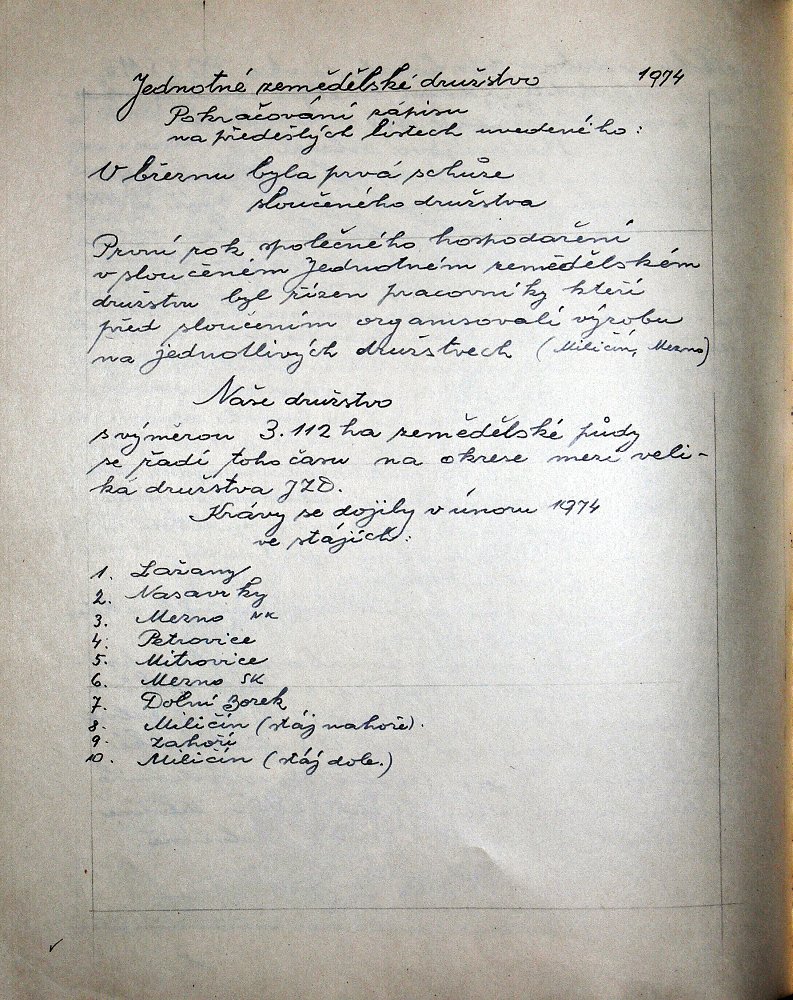 Jednotné zemědělské družstvo 1974
Pokračování zápisu
na předešlých listech uvedeného:
V březnu byla prvá schůze
sloučeného družstva
První rok společného hospodaření
v sloučeném Jednotném zemědělském
družstvu byl řízen pracovníky kteří
před sloučením organisovali výrobu
na jednotlivých družstvech (Miličín, Mezno)
Naše družstvo
s výměrou 3.112 ha zemědělské půdy
se řadí toho času na okrese mezi veli-
ká družstva JZD.
Krávy se dojily v únoru 1974
ve stájích:
1. Lažany
2. Nasavrky
3. Mezno NK
4. Petrovice
5. Mitrovice
6. Mezno SK
7. Dolní Borek
8. Miličín (stáj nahoře).
9. Záhoří
10. Miličín (stáj dole.)